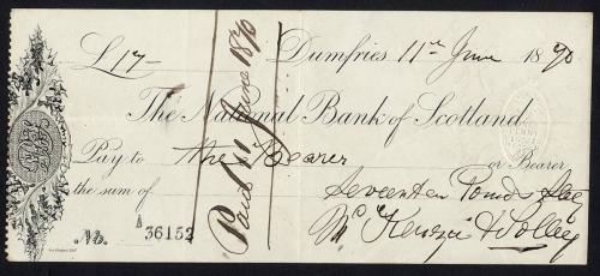 £17-
Dumfries 11th June 1890
The National Bank of Scotland
Pay to the Bearer or Bearer
the sum of Seventeen Pounds Stg
No. A 36152
McKenzie & Solley
Paid 11 June 1890